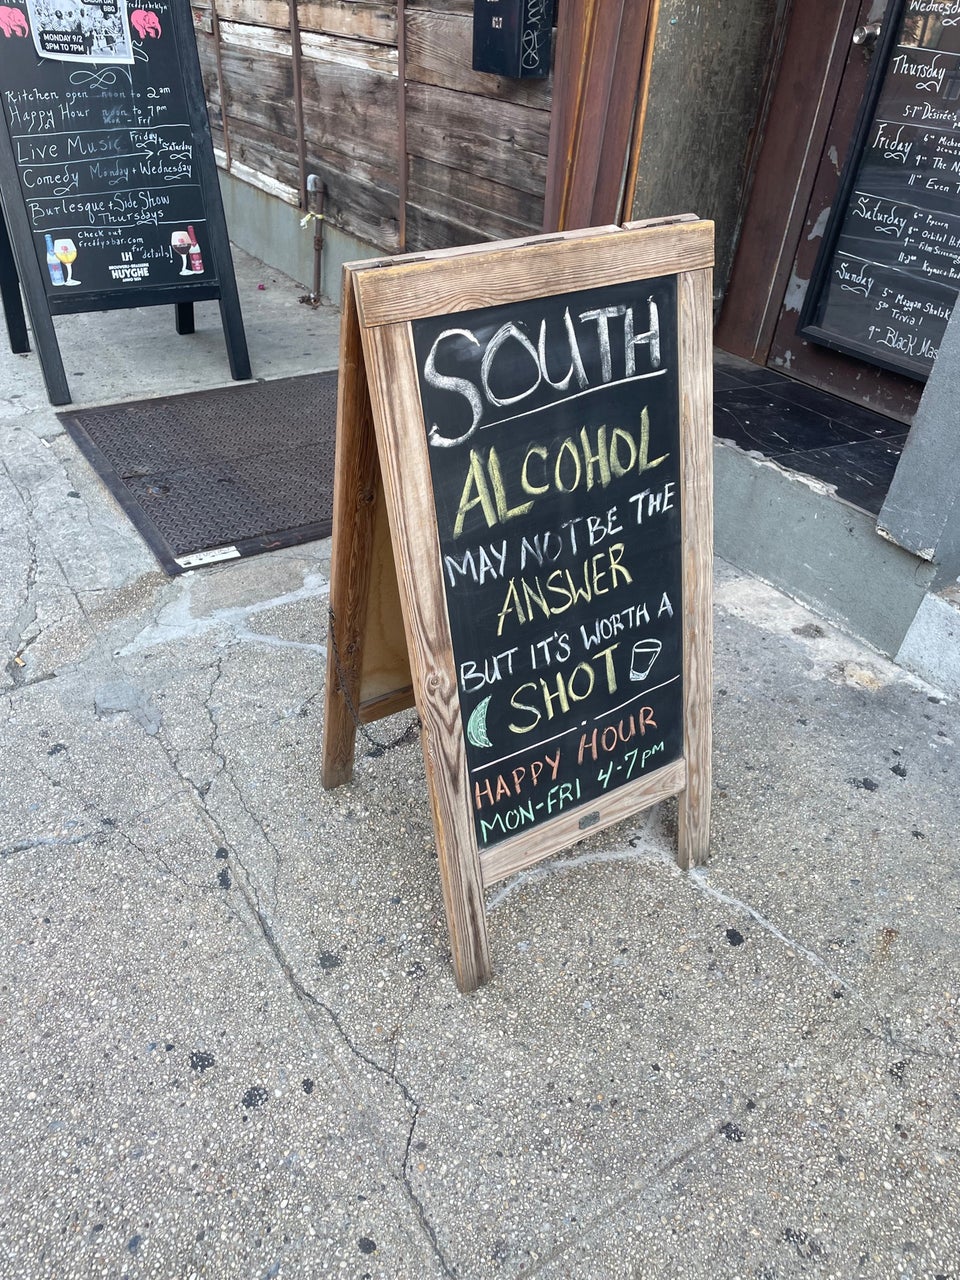 MONDAY 9/2
3PM TO 7PM
Kitchen open noon to 2am
Happy Hour noon to 7pm
Mon - Fri
Live Music Friday + Saturday
Comedy Monday + Wednesday
Burlesque + Side Show
Thursdays
Check out
freddysbar.com
for details!
LH
HUYGHE
SOUTH
ALCOHOL
MAY NOT BE THE
ANSWER
BUT IT'S WORTH A
SHOT
HAPPY HOUR
MON-FRI 4-7PM
Thursday
Friday
9" The
11" Even
Saturday 6" Popcorn
8" Orbital
9" Film Screening
Sunday 5" Maegan
Trivia!
9" Black Mas